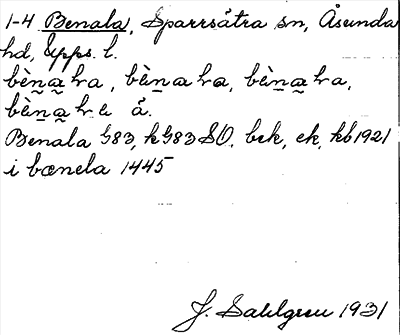 1-4 Benala, Sparrsåtra sn, Åsunda
hd, Upps. l.
bèn̰a̰ha, bèn̰aha, bèn̰a̰ha,
bèn̰a̰he å.
Benala G83, kG83 SO, bek, ek, kb 1921
i bænela 1445
J. Sahlgren 1931